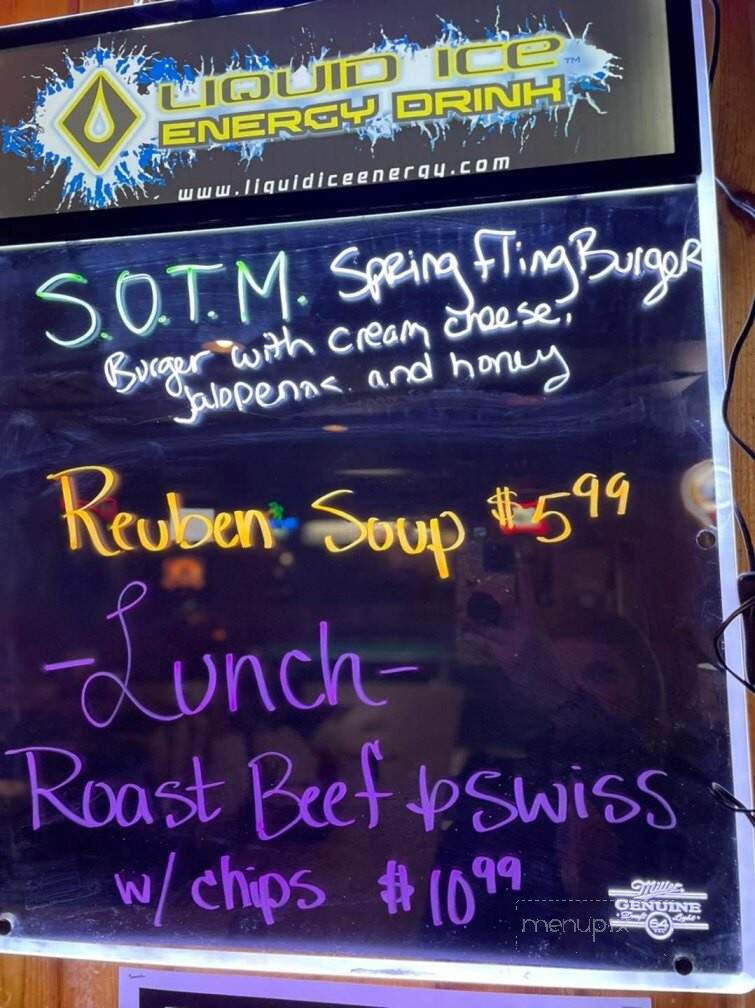 LIQUID ICE™
ENERGY DRINK
www.liquidiceenergy.com
S.O.T.M. Spring Fling Burger
Burger with cream cheese,
Jalopenas and honey
Reuben Soup $5.99
-Lunch-
Roast Beef & Swiss
w/ chips $10.99
Miller
GENUINE
Draft Light
64
menupix